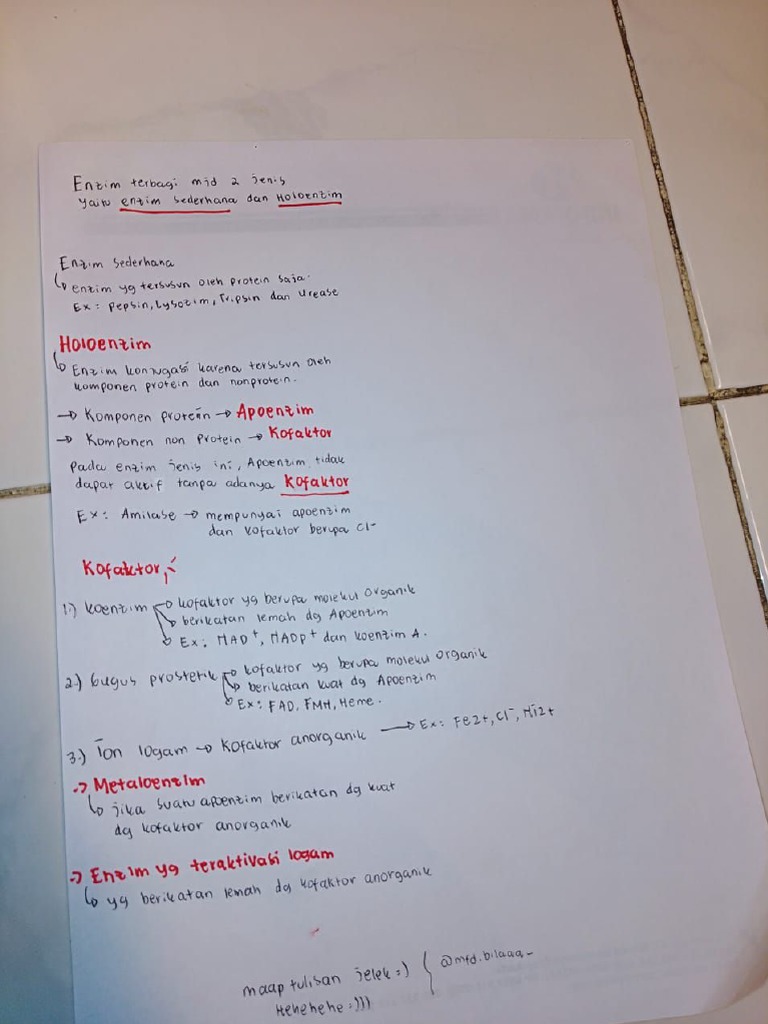 Enzim terbagi mjd 2 jenis
yaitu enzim sederhana dan Holoenzim
Enzim sederhana
↳ enzim yg tersusun oleh protein saja.
Ex : pepsin, Lysozim, Tripsin dan Urease
Holoenzim
↳ Enzim konjugasi karena tersusun oleh
komponen protein dan nonprotein.
→ Komponen protein → Apoenzim
→ Komponen non Protein → Kofaktor
Pada enzim jenis ini, Apoenzim tidak
dapat aktif tanpa adanya Kofaktor
Ex : Amilase → mempunyai apoenzim
dan kofaktor berupa Cl-
Kofaktor,
1.) koenzim → kofaktor yg berupa molekul organik
→ berikatan lemah dg Apoenzim
→ Ex : NAD+, NADP+ dan koenzim A.
2.) Gugus prostetik → kofaktor yg berupa molekul organik
→ berikatan kuat dg Apoenzim
→ Ex : FAD, FMN, Heme.
3.) Ion logam → Kofaktor anorganik → Ex : Fe2+, Cl-, Ni2+
→ Metaloenzim
↳ jika suatu apoenzim berikatan dg kuat
dg kofaktor anorganik
→ Enzim yg teraktivasi logam
↳ yg berikatan lemah dg kofaktor anorganik
maap tulisan jelek :) { @mfd.bilaaa_
Hehehehe :)))